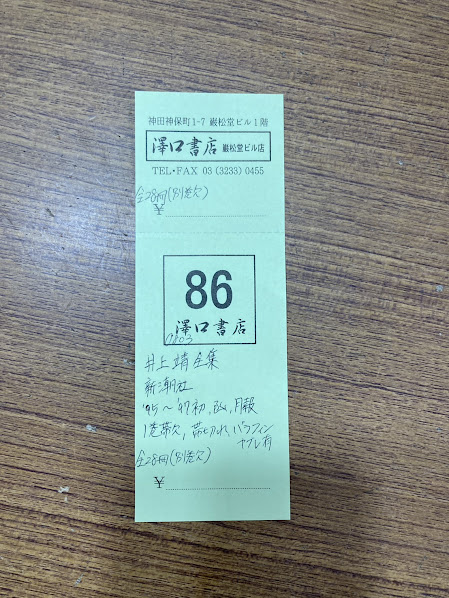 神田神保町1-7 巖松堂ビル1階
澤口書店 巖松堂ビル店
TEL・FAX 03 (3233) 0455
全28冊(別巻欠)
¥
86
澤口書店
井上靖全集
新潮社
'95～'97 初、函、月報
1巻帯欠、帯切れ、パラフィン
ナブレ有
全28冊(別巻欠)
¥